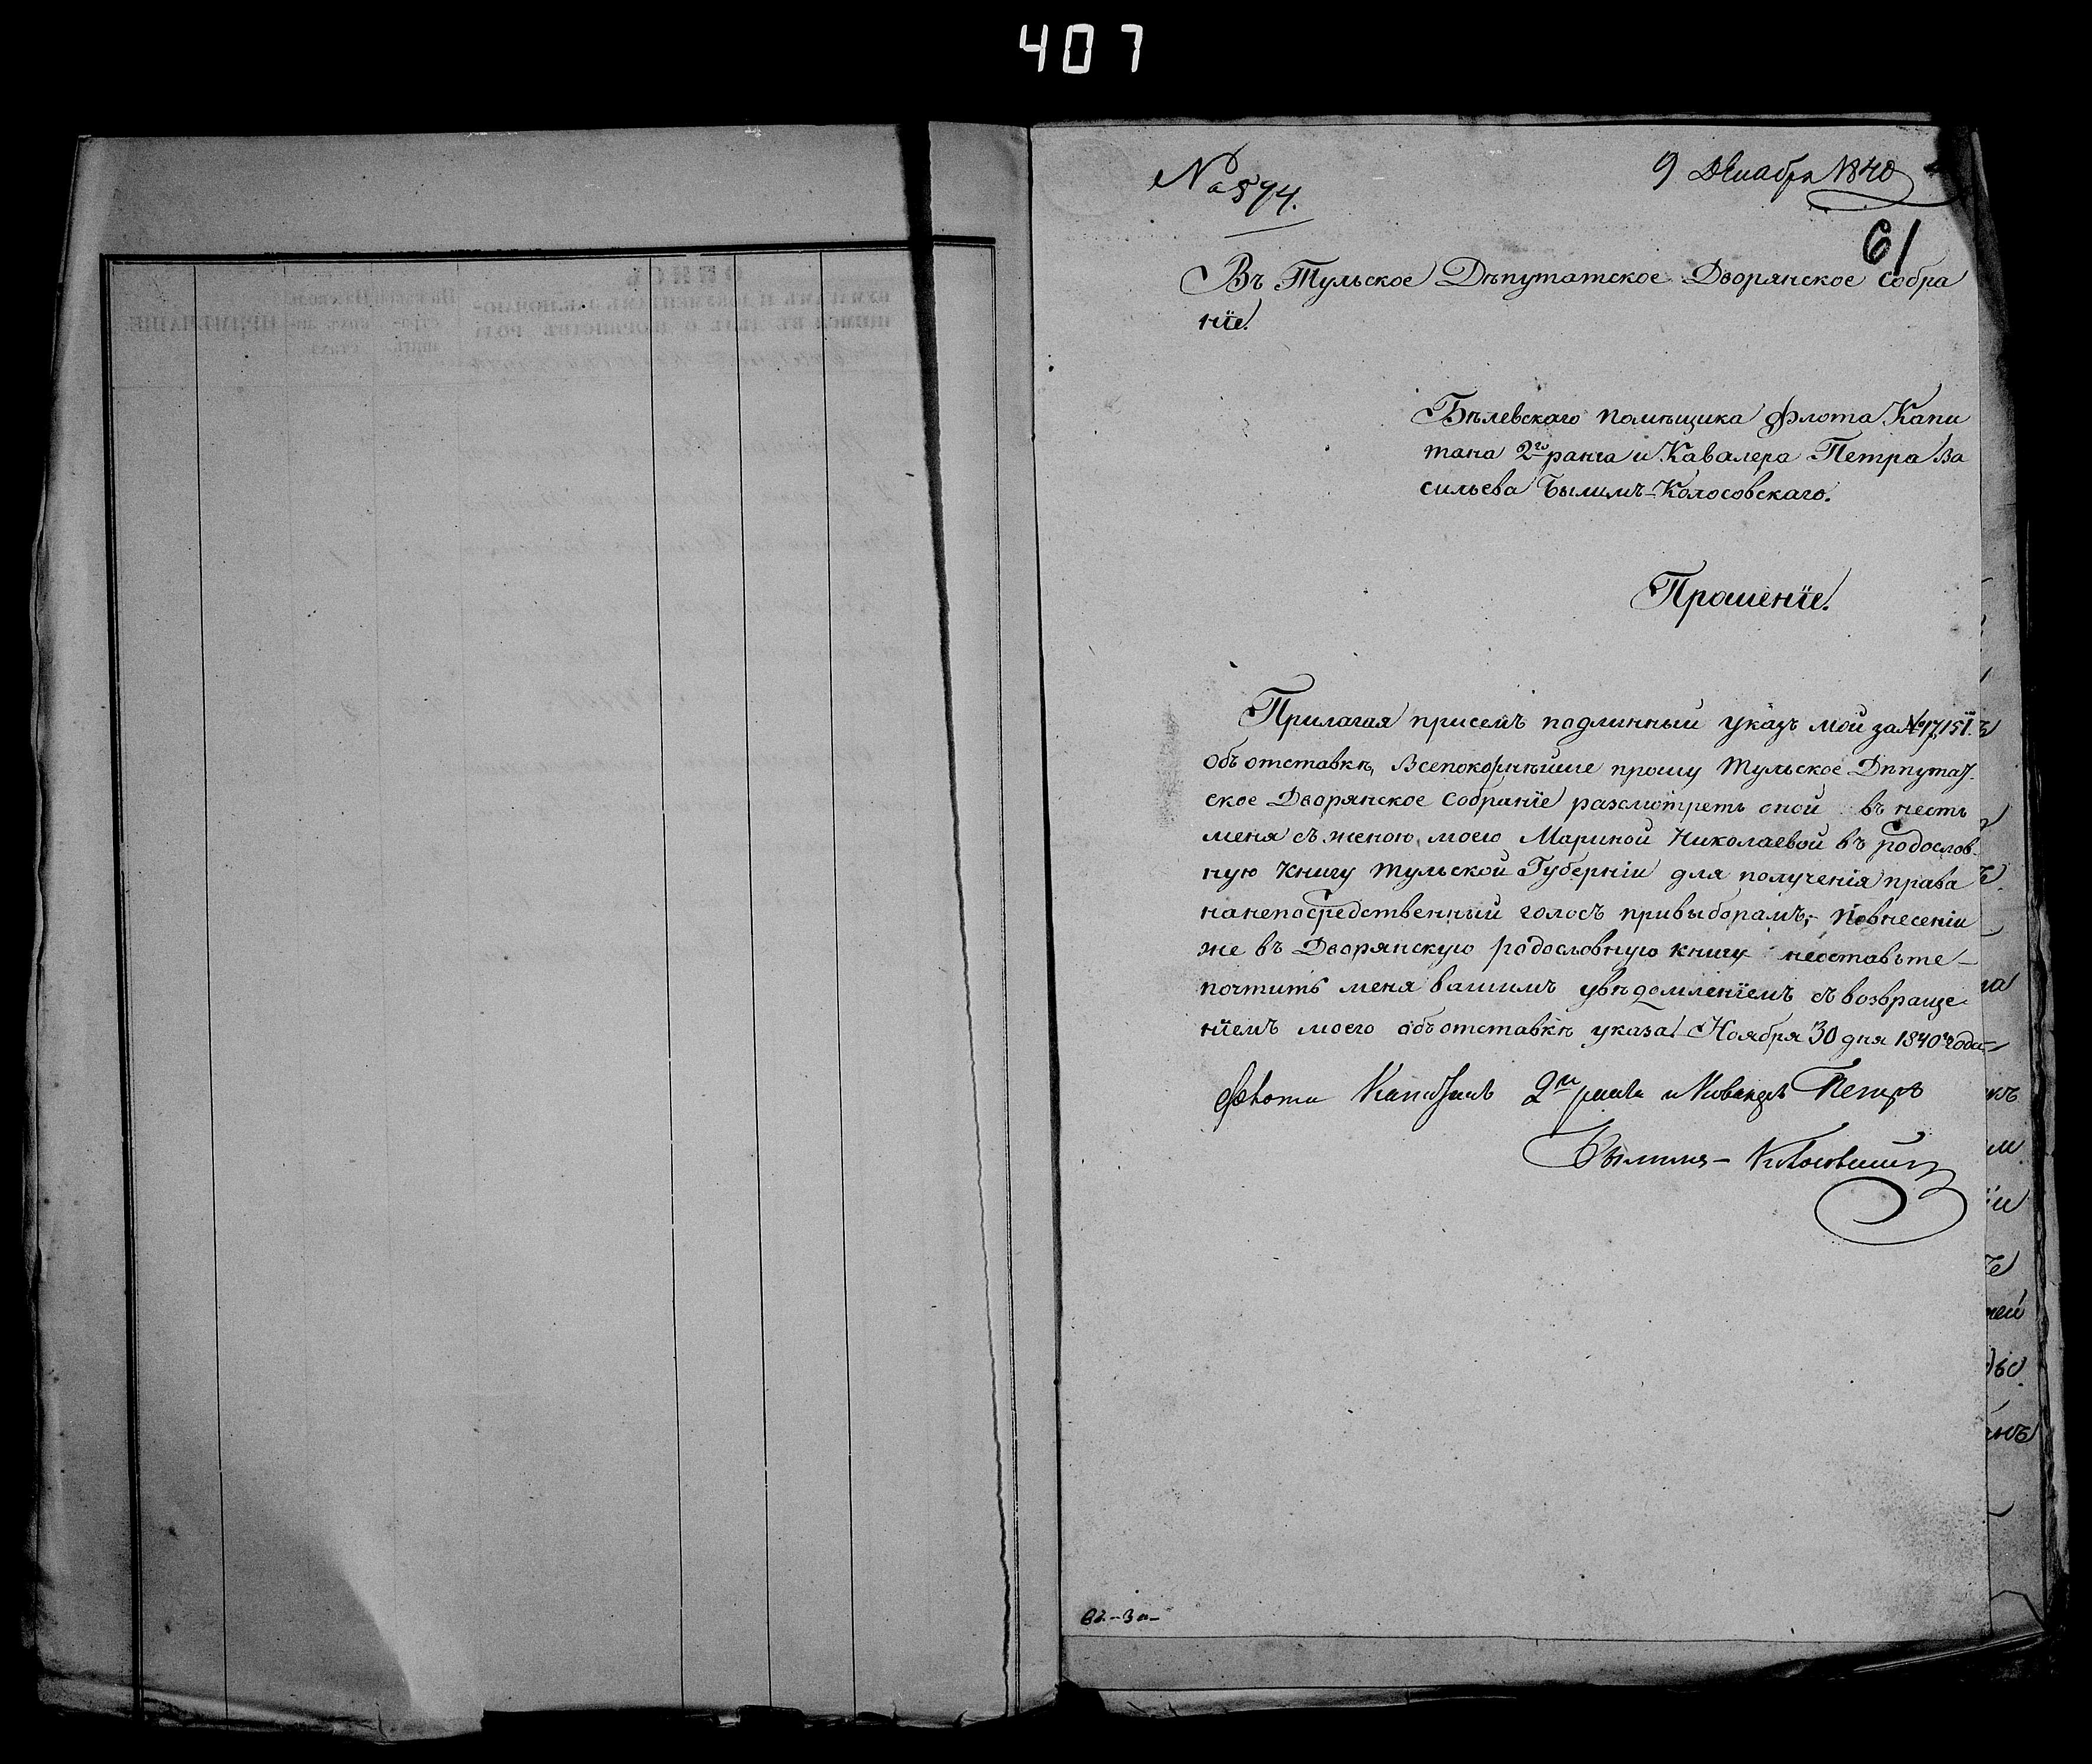 407
№ 594.
9 Декабря 1840
61
Въ Тульское Дѣпутатское Дворянское Собра
нїе.
Бѣлевскаго помѣщика Флота Капи
тана 2го ранга и Кавалера Петра Ва
сильева Былимъ-Колосовскаго.
Прошенїе.
Прилагая присемъ подлинный указъ мой за №17,151.
объ отставкѣ, Всепокорнѣйше прошу Тульское Дѣпутат-
ское Дворянское Собранїе разсмотреть оной внесть
меня съ женою моею Мариной Николаевой въ родослов-
ную книгу Тульской Губернїи для полученія права
на непосредственный голосъ привыборамъ, – Повнесеніи
же въ Дворянскую родословную книгу неоставьте –
почтить меня вашимъ увѣдомленїемъ съ возвраще
нїемъ моего объ отставкѣ указа. Ноября 30 дня 1840 года
Флота Капитанъ 2го ранга и Кавалеръ Петръ
Былимъ – Колосовский